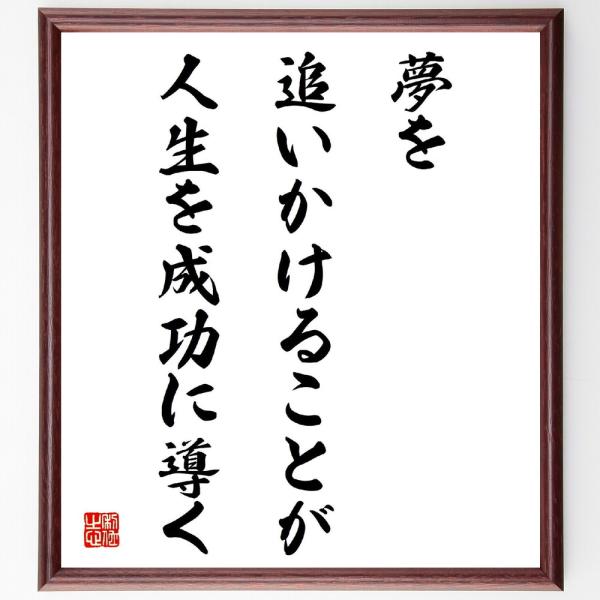 夢を
追いかけることが
人生を成功に導く